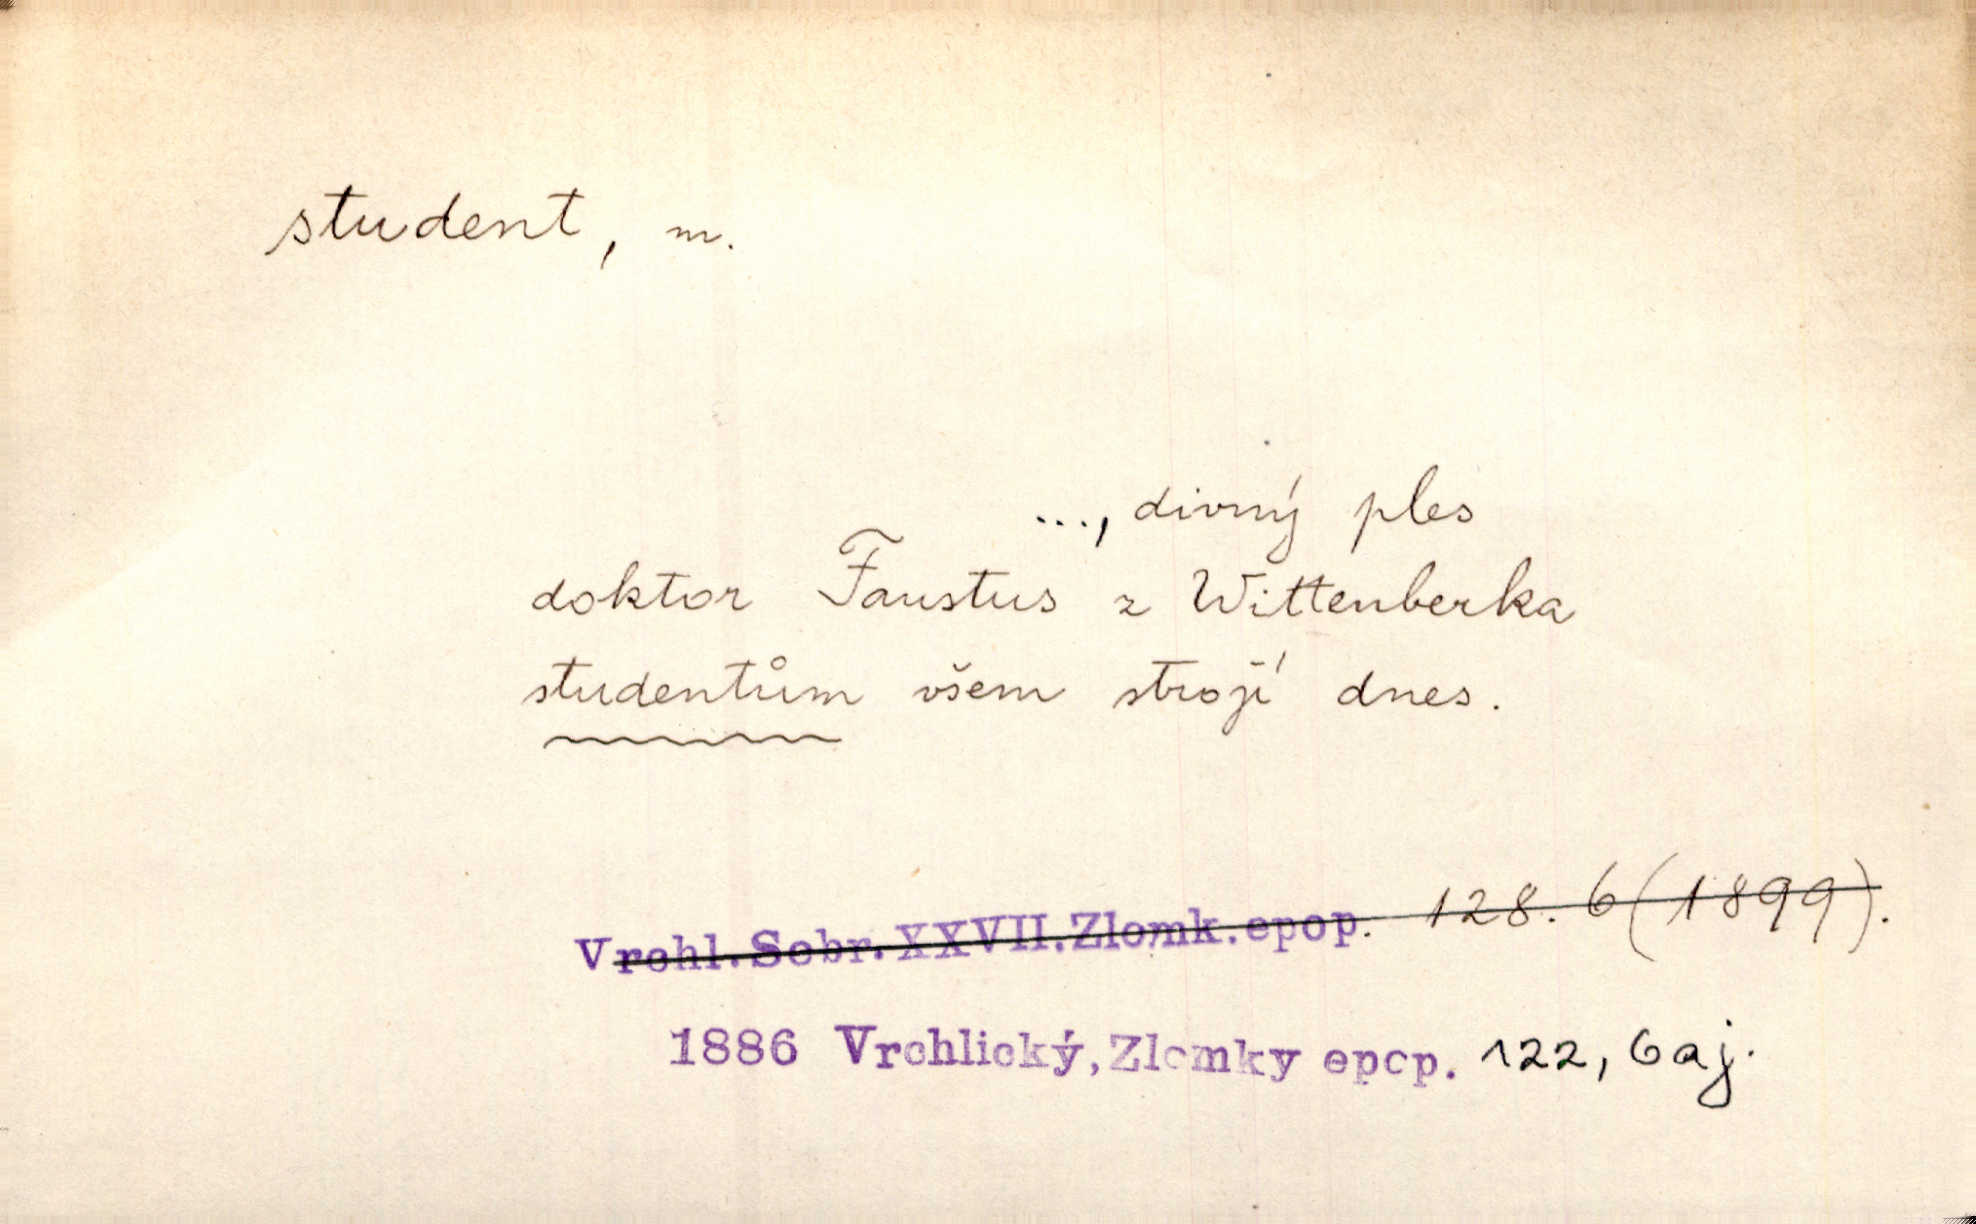 student, m.
..., divný ples
doktor Faustus z Wittenberka
studentům všem strojí dnes.
Vrchl.Sebr.XXVII.Zlomk.epop. 128. 6 (1899).
1886 Vrchlický,Zlomky epop. 122, 6 aj.